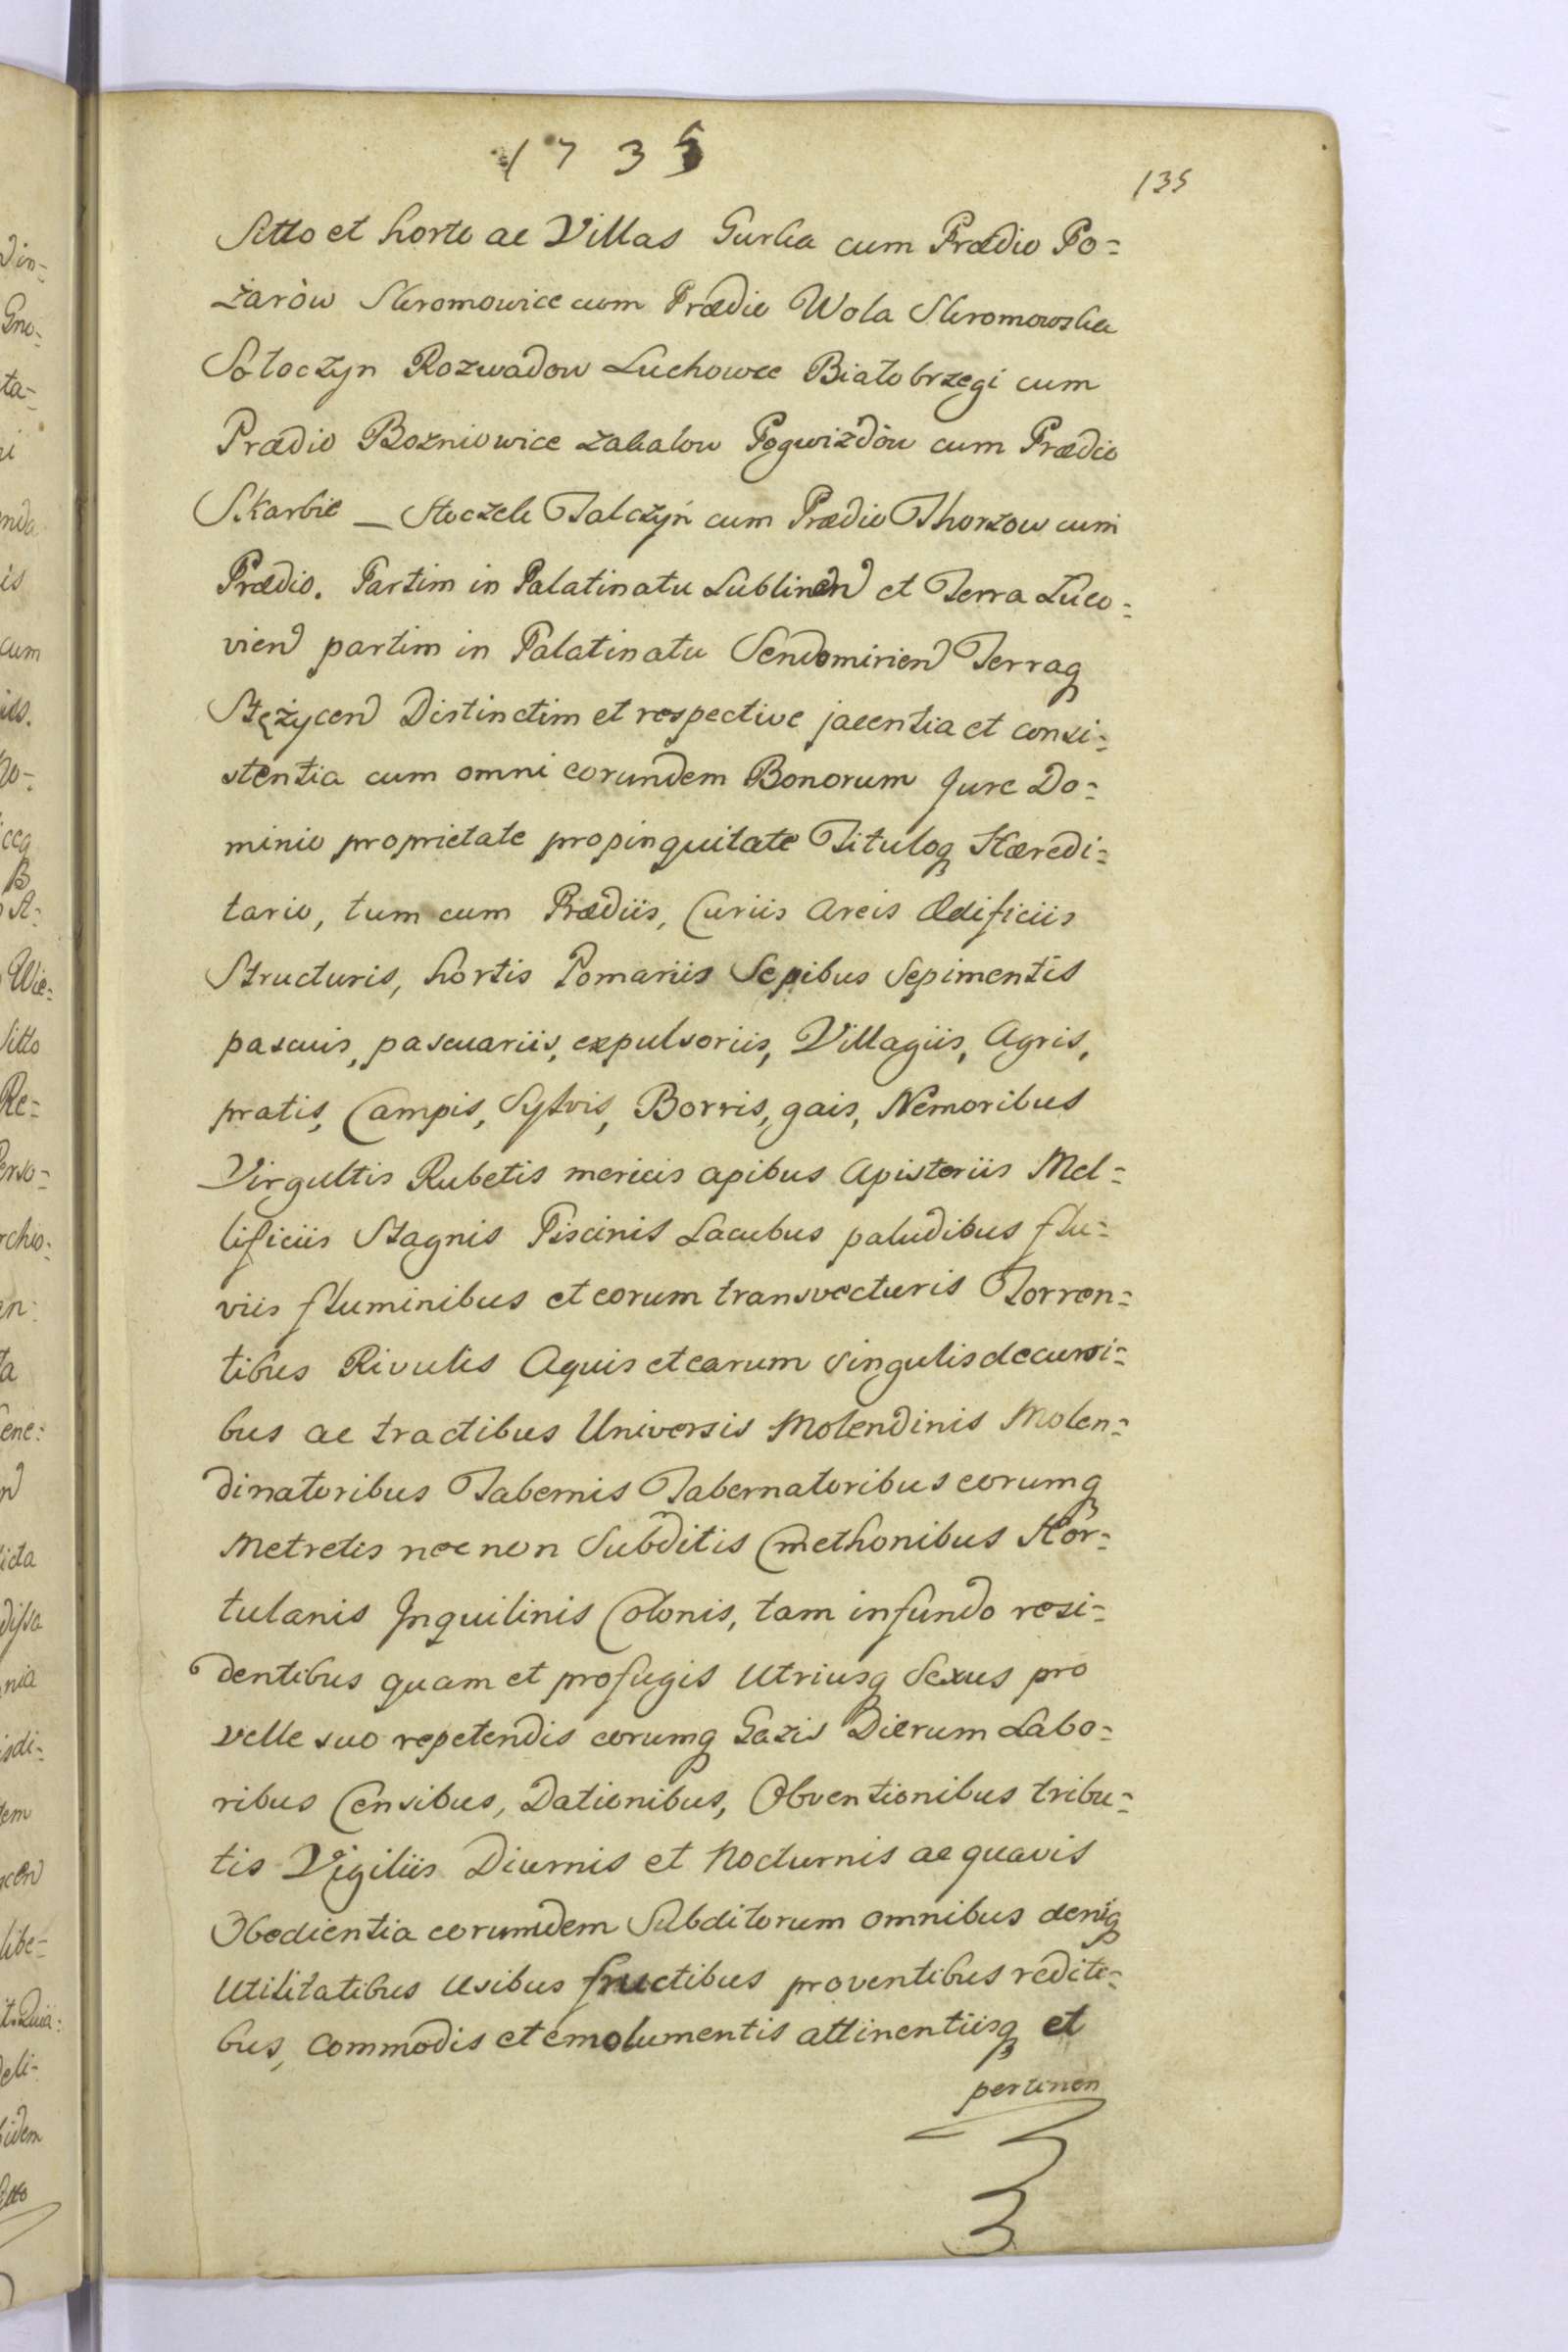 1735
135
Sitto et horto ac Villas Gurka cum Prædio Po=
żarów Skromowice cum Prædio Wola Skromowska
Sotoczyn Rozwadow Luchowce Białobrzegi cum
Prædio Bozniowice zakalow Pogwizdów cum Prædio
Skarbie _ Stoczek Talczyń cum Prædio Thorzow cum
Prædio. Partim in Palatinatu Lublinen et Terra Luco=
vien partim in Palatinatu Sendomirien Terraq
Stężycen Distinctim et respective jacentia et consi=
stentia cum omni eorundem Bonorum Jure Do=
minio proprietate propinquitate Tituloq Hæredi=
tario, tum cum Prædiis, Curiis Areis Ædificiis
Structuris, hortis Pomariis Sepibus Sepimentis
pascuis, pascuariis, expulsoriis, Villagiis, Agris,
pratis, Campis, Sylvis, Borris, gais, Nemoribus
Virgultis Rubetis mericis apibus Apisteriis Mel=
lificiis Stagnis Piscinis Lacubus paludibus flu=
viis fluminibus et eorum transvecturis Torren=
tibus Rivulis Aquis et earum singulis decursi=
bus ac tractibus Universis Molendinis Molen=
dinatoribus Tabernis Tabernatoribus eorumq
Metretis nec non Subditis Cmethonibus Hor=
tulanis Inquilinis Colonis, tam in fundo resi=
dentibus quam et profugis Utriusq Sexus pro
velle suo repetendis eorumq Gazis Dierum Labo=
ribus Censibus, Dationibus, Obventionibus tribu=
tis Vigiliis Diurnis et Nocturnis ac quavis
Obedientia eorumdem Subditorum omnibus deniq
Utilitatibus Usibus fructibus proventibus rediti=
bus, Commodis et emolumentis attinentiisq et
pertinen